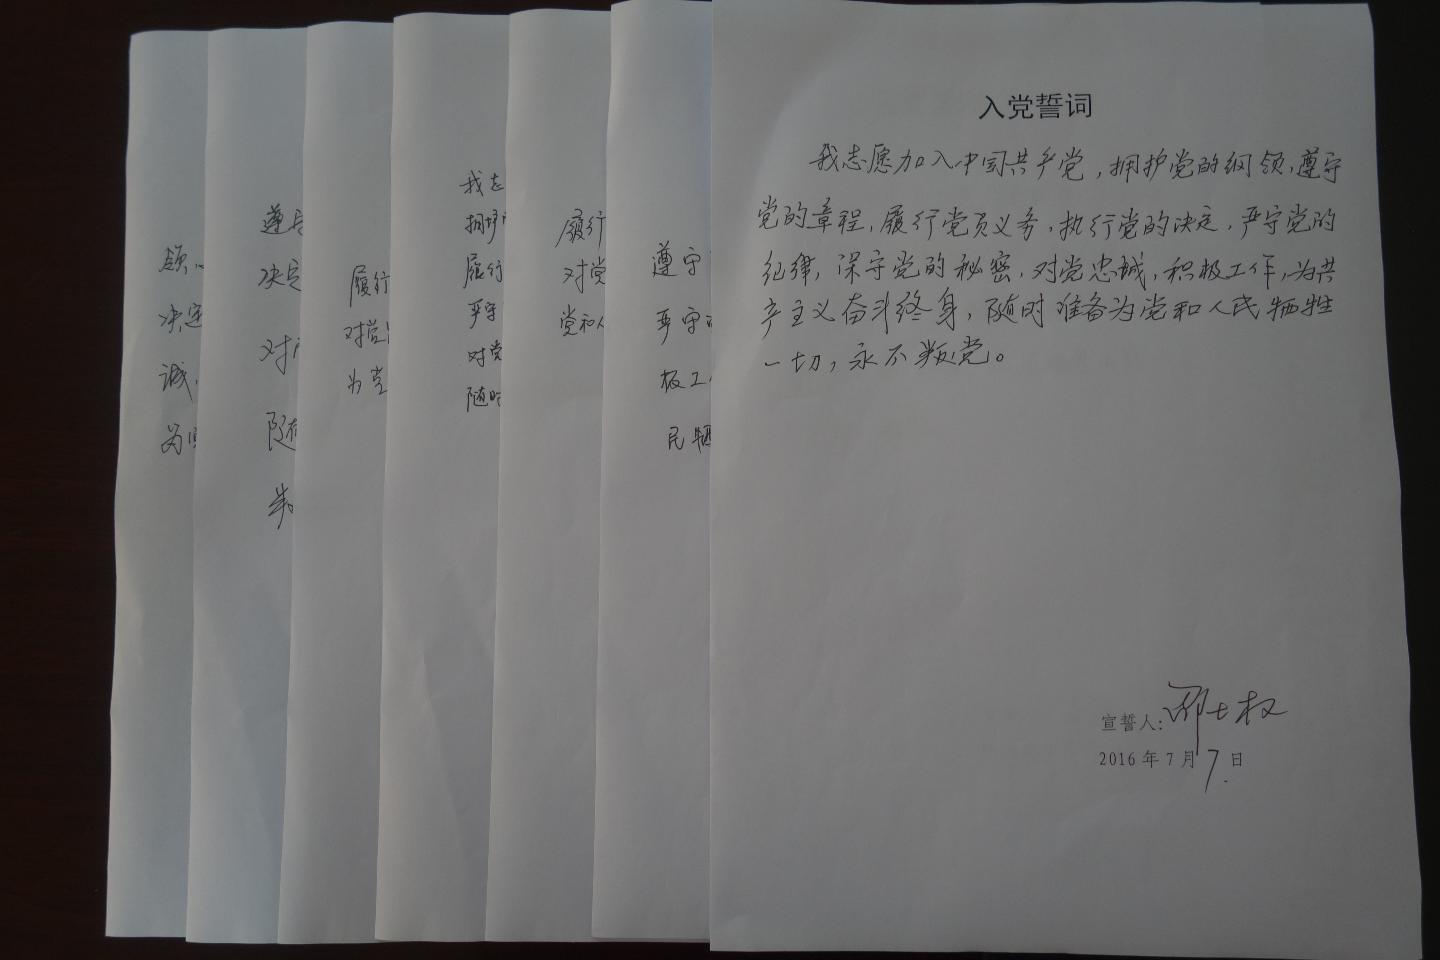 领、
决定
诚,
为
遵守
决定
对
随
牺
履行
对党
为党
我志
拥护
履行
严守
对党
随时
履行
对党
党和人
遵守
严守
极工
民牺
入党誓词
我志愿加入中国共产党，拥护党的纲领，遵守
党的章程，履行党员义务，执行党的决定，严守党的
纪律，保守党的秘密，对党忠诚，积极工作，为共
产主义奋斗终身，随时准备为党和人民牺牲
一切，永不叛党。
宣誓人：邢士权
2016年7月7日